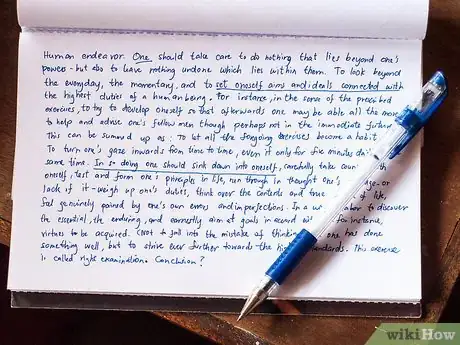 Human endeavor. One should take care to do nothing that lies beyond one's
powers - but also to leave nothing undone which lies within them. To look beyond
the everyday, the momentary, and to set oneself aims and ideals connected with
the highest duties of a human being. For instance, in the sense of the prescribed
exercises, to try to develop oneself so that afterwards one may be able all the more
to help and advise one's fellow men though perhaps not in the immediate future
This can be summed up as : To let all the foregoing exercises become a habit
To turn one's gaze inwards from time to time, even if only for five minutes daily
same time. In so doing one should sink down into oneself, carefully take counsel
oneself, test and form one's principles in life, run through in thought one's
lack of it - weigh up one's duties, think over the contents and true of life,
feel genuinely pained by one's own errors and imperfections. In a labor to discover
the essential, the enduring, and earnestly aim at goals in accord for instance,
virtues to be acquired. (Not to fall into the mistake of thinking one has done
something well, but to strive ever further towards the standards. This exercise
is called right examination. Conclusion?
wikiHow